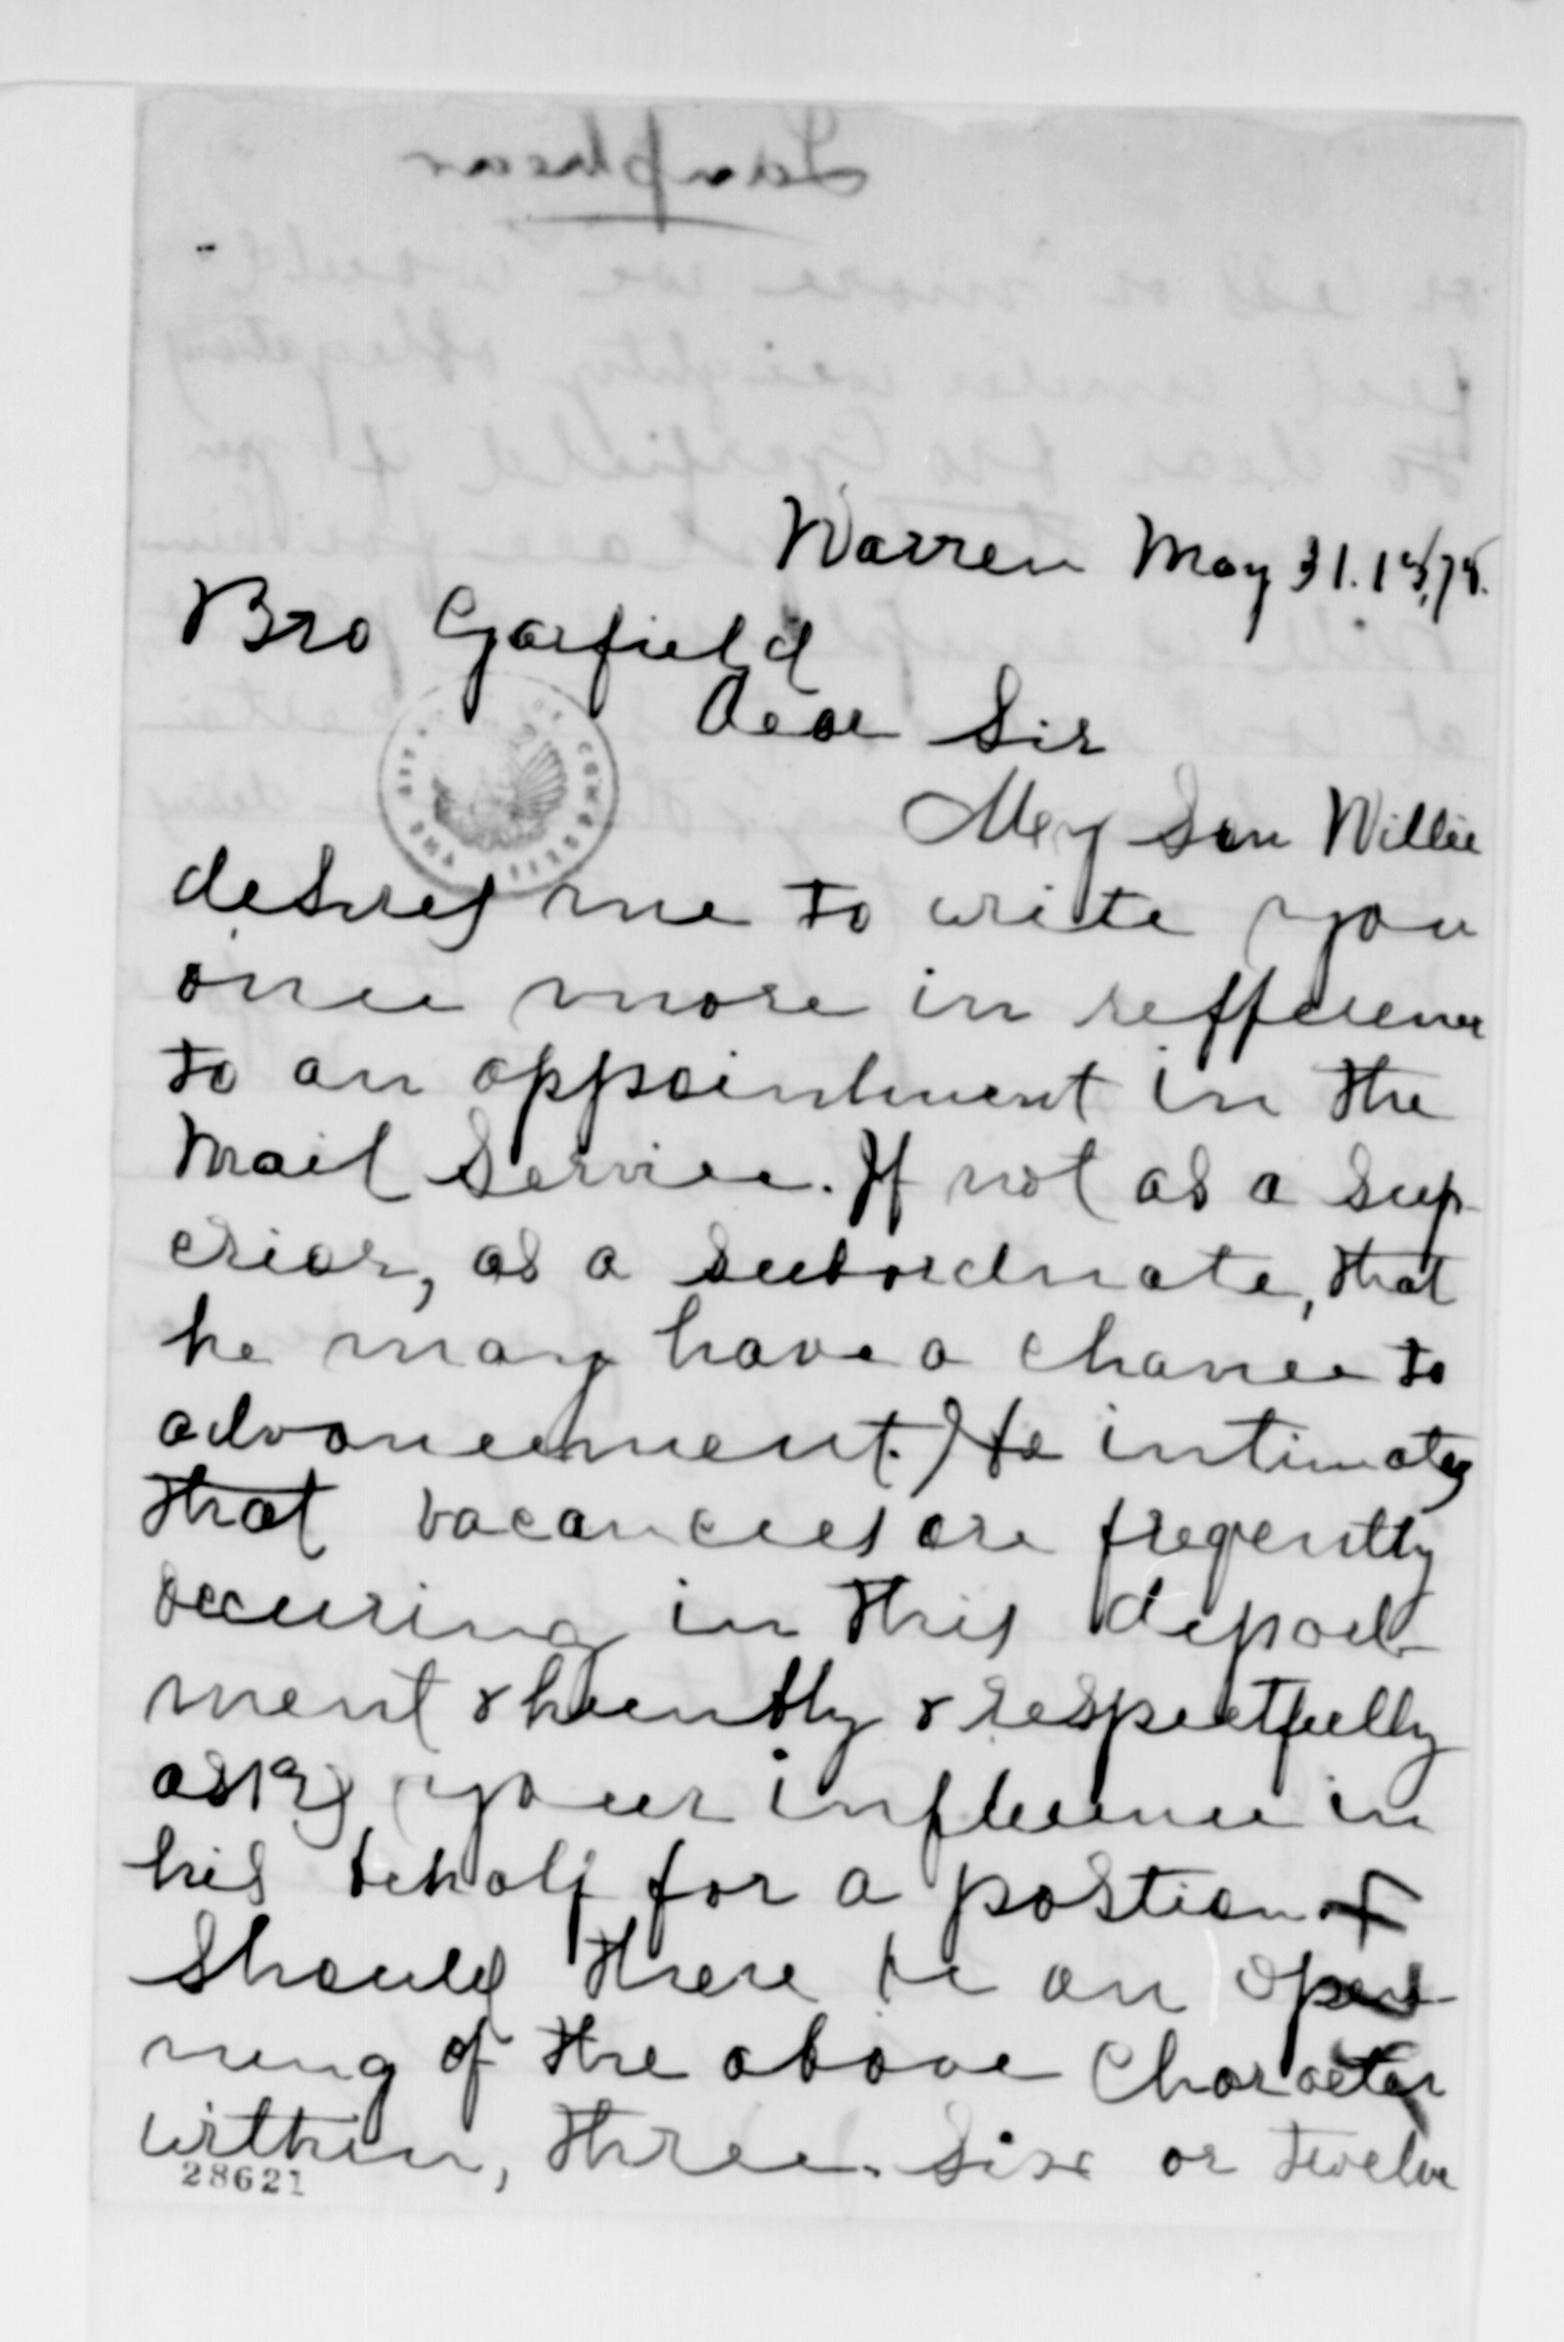 Lamphear
Warren May 31. 1878.
Bro Garfield
Dear Sir
My Son Willie
desires me to write you
once more in refference
to an appointment in the
Mail Service. If not as a sup-
erior, as a subordnate, that
he may have a chance to
advancement. He intimates
that vacancies are freqently
occuring in this depart-
ment & humbly & respectfully
asks your influence in
his behalf for a postion &
should there be an open-
ning of the above Character
within, three. Six or twelve
28621